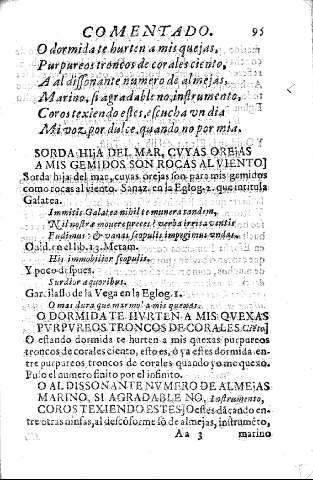 COMENTADO. 95
O dormida te hurten a mis quejas,
Purpureos troncos de corales ciento,
A al dissonante numero de almejas,
Marino, si agradable no, instrumento,
Coros texiendo estes, escucha vn dia
Mi voz, por dulce, quando no por mia.
SORDA HIJA DEL MAR, CVYAS OREJAS
A MIS GEMIDOS SON ROCAS AL VIENTO]
Sorda hija del mar, cuyas orejas son para mis gemidos
como rocas al viento. Sanaz. en la Eglog. 2. que intitula
Galatea.
Immitis Galatea nihil te munera tandem,
Nil nostræ mouere preces? verba irrita ventis
Fudimus: & vanas scopulis impegimus vndas.
Ouid. en el lib. 13. Metam.
His immobilior scopulis.
Y poco despues.
Surdior æquoribus.
Garcilasso de la Vega en la Eglog. 1.
O mas dura que marmol a mis quexas.
O DORMIDA TE HVRTEN A MIS QVEXAS
PVRPVREOS TRONCOS DE CORALES Ciéto]
O estando dormida te hurten a mis quexas purpureos
troncos de corales ciento, esto es, ò ya estes dormida en-
tre purpureos troncos de corales quando yo me quexo.
Puso el numero finito por el infinito.
O AL DISSONANTE NVMERO DE ALMEJAS
MARINO, SI AGRADABLE NO, Instrumento,
COROS TEXIENDO ESTES] O estes dáçando en-
tre otras ninfas, al descōforme sō de almejas, instrumēto,
Aa 3 marino